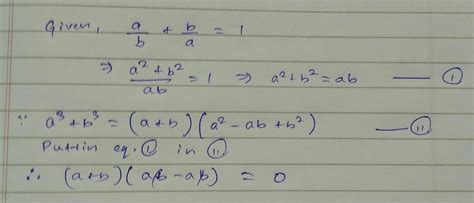 Given, a/b + b/a = 1
⇒ (a² + b²)/ab = 1 ⇒ a² + b² = ab —— (I)
∵ a³ + b³ = (a + b) (a² - ab + b²) —— (II)
Puttin eq. (I) in (II)
∴ (a + b) (ab - ab) = 0